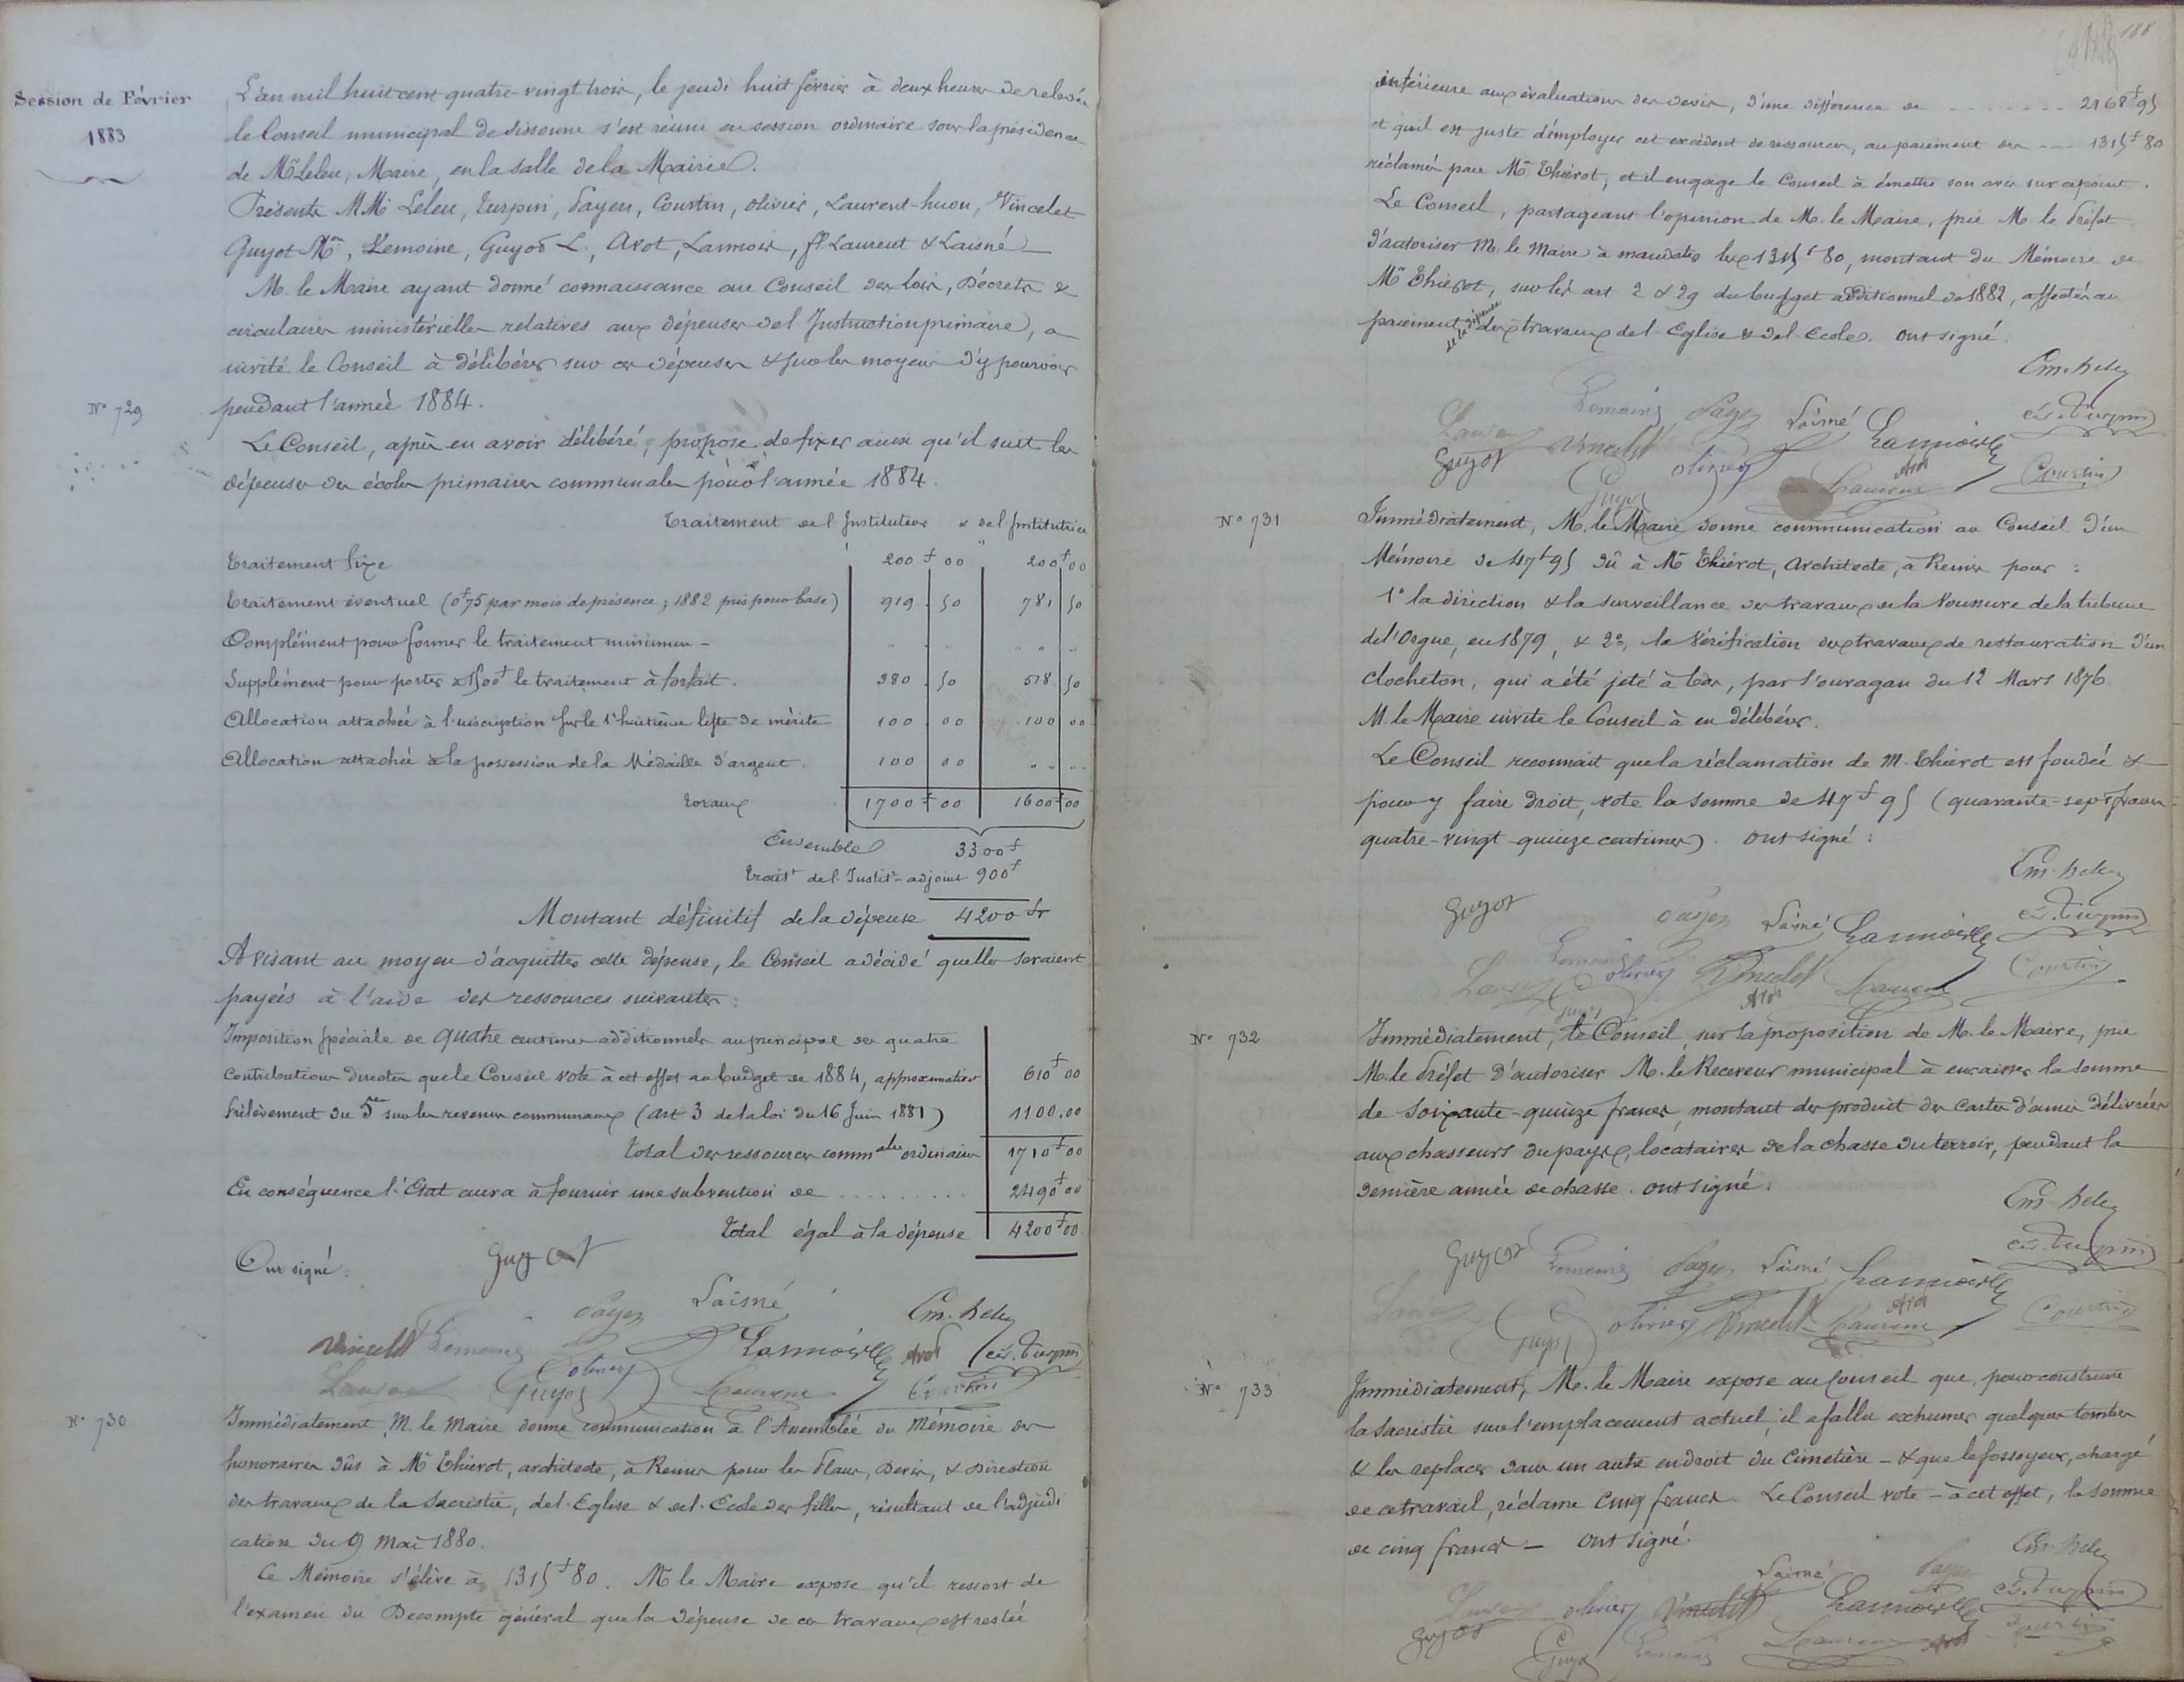 Session de Février
1883
L'an mil huit cent quatre-vingt trois, le jeudi huit février à deux heures de relevée
le Conseil municipal de Sissonne s'est réuni en session ordinaire sous la présidence
de Mr Leleu, Maire, en la salle de la Mairie.
Présents MMrs Leleu, Turpin, Payen, Courtin, Olivier, Laurent-huon, Vincelet
Guyot Mn, Lemoine, Guyot L., Arot, Lannois, fl Laurent & Laisné
M. le Maire ayant donné connaissance au Conseil des lois, Décrets &
circulaires ministérielles relatives aux dépenses de l'Instruction primaire, a
invité le Conseil à délibérer sur ces dépenses & sur les moyens d'y pourvoir
pendant l'année 1884.
N° 729
Le Conseil, après en avoir délibéré, propose de fixer ainsi qu'il suit les
dépenses des écoles primaires communales pour l'année 1884.
Traitement de l'Instituteur & de l'Institutrice
Traitement fixe 200f 00 200f 00
Traitement éventuel (0f75 par mois de présence; 1882 pris pour base) 919 . 50 781 50
Complément pour former le traitement minimum - " " " "
Supplément pour porter à 1500f le traitement à forfait. 380 . 50 518 50
Allocation attachée à l'inscription sur le 1er huitième liste de mérite 100 . 00 100 00
Allocation attachée à la possession de la Médaille d'argent. 100 00 " "
Totaux 1700f 00 1600f 00
Ensemble 3300f
Trait' de l'Instit'-adjoint 900f
Montant définitif de la dépense 4200 fr
Avisant au moyen d'acquitter cette dépense, le Conseil a décidé quelles seraient
payées à l'aide des ressources suivantes:
Imposition spéciale de quatre centimes additionnels au principal des quatre
contributions directes que le Conseil vote à cet effet au budget de 1884, approximatives 610f 00
Prélèvement du 5me sur les revenus communaux (art 3 de la loi du 16 Juin 1881) 1100.00
Total des ressources commales ordinaires 1710f 00
En conséquence l'Etat aura à fournir une subvention de ......... 2490f 00
Total égal à la dépense 4200f 00
Ont signé: Guyot
Payen Laisné Em. Leleu
Vincelet Lemoine Lannois Arot Cés. Turpin
Laurent Guyot Olivier Laurent Courtin
N° 730
Immédiatement M. le Maire donne communication à l'Assemblée du Mémoire des
honoraires dûs à Mr Thiérot, architecte, à Reims pour les Plans, Devis, & Direction
des travaux de la Sacristie, de l'Eglise & de l'Ecole des filles, résultant de l'adjudi
cation du 9 Mai 1880.
Ce Mémoire s'élève à 1315f 80. Mr le Maire expose qu'il ressort de
l'examen du Décompte général que la dépense de ces travaux est restée
188
inférieure aux évaluations des devis, d'une différence de ....... 2168f 95
et qu'il est juste d'employer cet excédent de ressources, au paiement des --- 1315f 80
réclamés par Mr Thiérot, et il engage le Conseil à émettre son avis sur ce point.
Le Conseil, partageant l'opinion de M. le Maire, prie M. le Préfet
d'autoriser M. le Maire à mandater les 1315f 80, montant du Mémoire de
Mr Thiérot, sur les art 2 & 29 du budget additionnel de 1882, affectés au
paiement de la dépense des travaux de l'Eglise & de l'Ecole. Ont signé.
Em. Leleu
Lemoine Payen Laisné Cés. Turpin
Laurent Vincelet Lannois
Guyot Olivier Arot Courtin
Guyot Laurent
N° 731
Immédiatement, M. le Maire donne communication au Conseil d'un
Mémoire de 47f 95 dû à Mr Thiérot, Architecte, à Reims pour :
1° la direction & la surveillance des travaux de la Voussure de la tribune
de l'Orgue, en 1879, & 2°, la Vérification des travaux de restauration d'un
clocheton, qui a été jeté à bas, par l'ouragan du 12 Mars 1876
M. le Maire invite le Conseil à en délibérer.
Le Conseil reconnait que la réclamation de M. Thiérot est fondée &
pour y faire droit, vote la somme de 47f 95 (quarante-sept francs
quatre-vingt-quinze centimes). Ont signé :
Em. Leleu
Guyot Payen Laisné Lannois Cés. Turpin
Lemoine Olivier Vincelet Courtin
Laurent Guyot Arot Laurent
N° 732
Immédiatement, le Conseil, sur la proposition de M. le Maire, prie
M. le Préfet d'autoriser M. le Receveur municipal à encaisser la somme
de soixante-quinze francs, montant des produit des cartes d'amis délivrées
aux chasseurs du pays, locataires de la chasse du terroir, pendant la
dernière année de chasse. Ont signé :
Em. Leleu
Guyot Lemoine Payen Laisné Lannois Cés. Turpin
Laurent Olivier Vincelet Laurent Arot Courtin
Guyot
N° 733
Immédiatement, M. le Maire expose au Conseil que, pour construire
la Sacristie sur l'emplacement actuel, il a fallu exhumer quelques tombes
& les replacer dans un autre endroit du Cimetière - & que le fossoyeur, chargé
de ce travail, réclame cinq francs. Le Conseil vote - à cet effet, la somme
de cinq francs - Ont signé.
Em. Leleu
Laisné Payen
Laurent Olivier Vincelet Lannois Cés. Turpin
Guyot Guyot Lemoine Laurent Arot Courtin